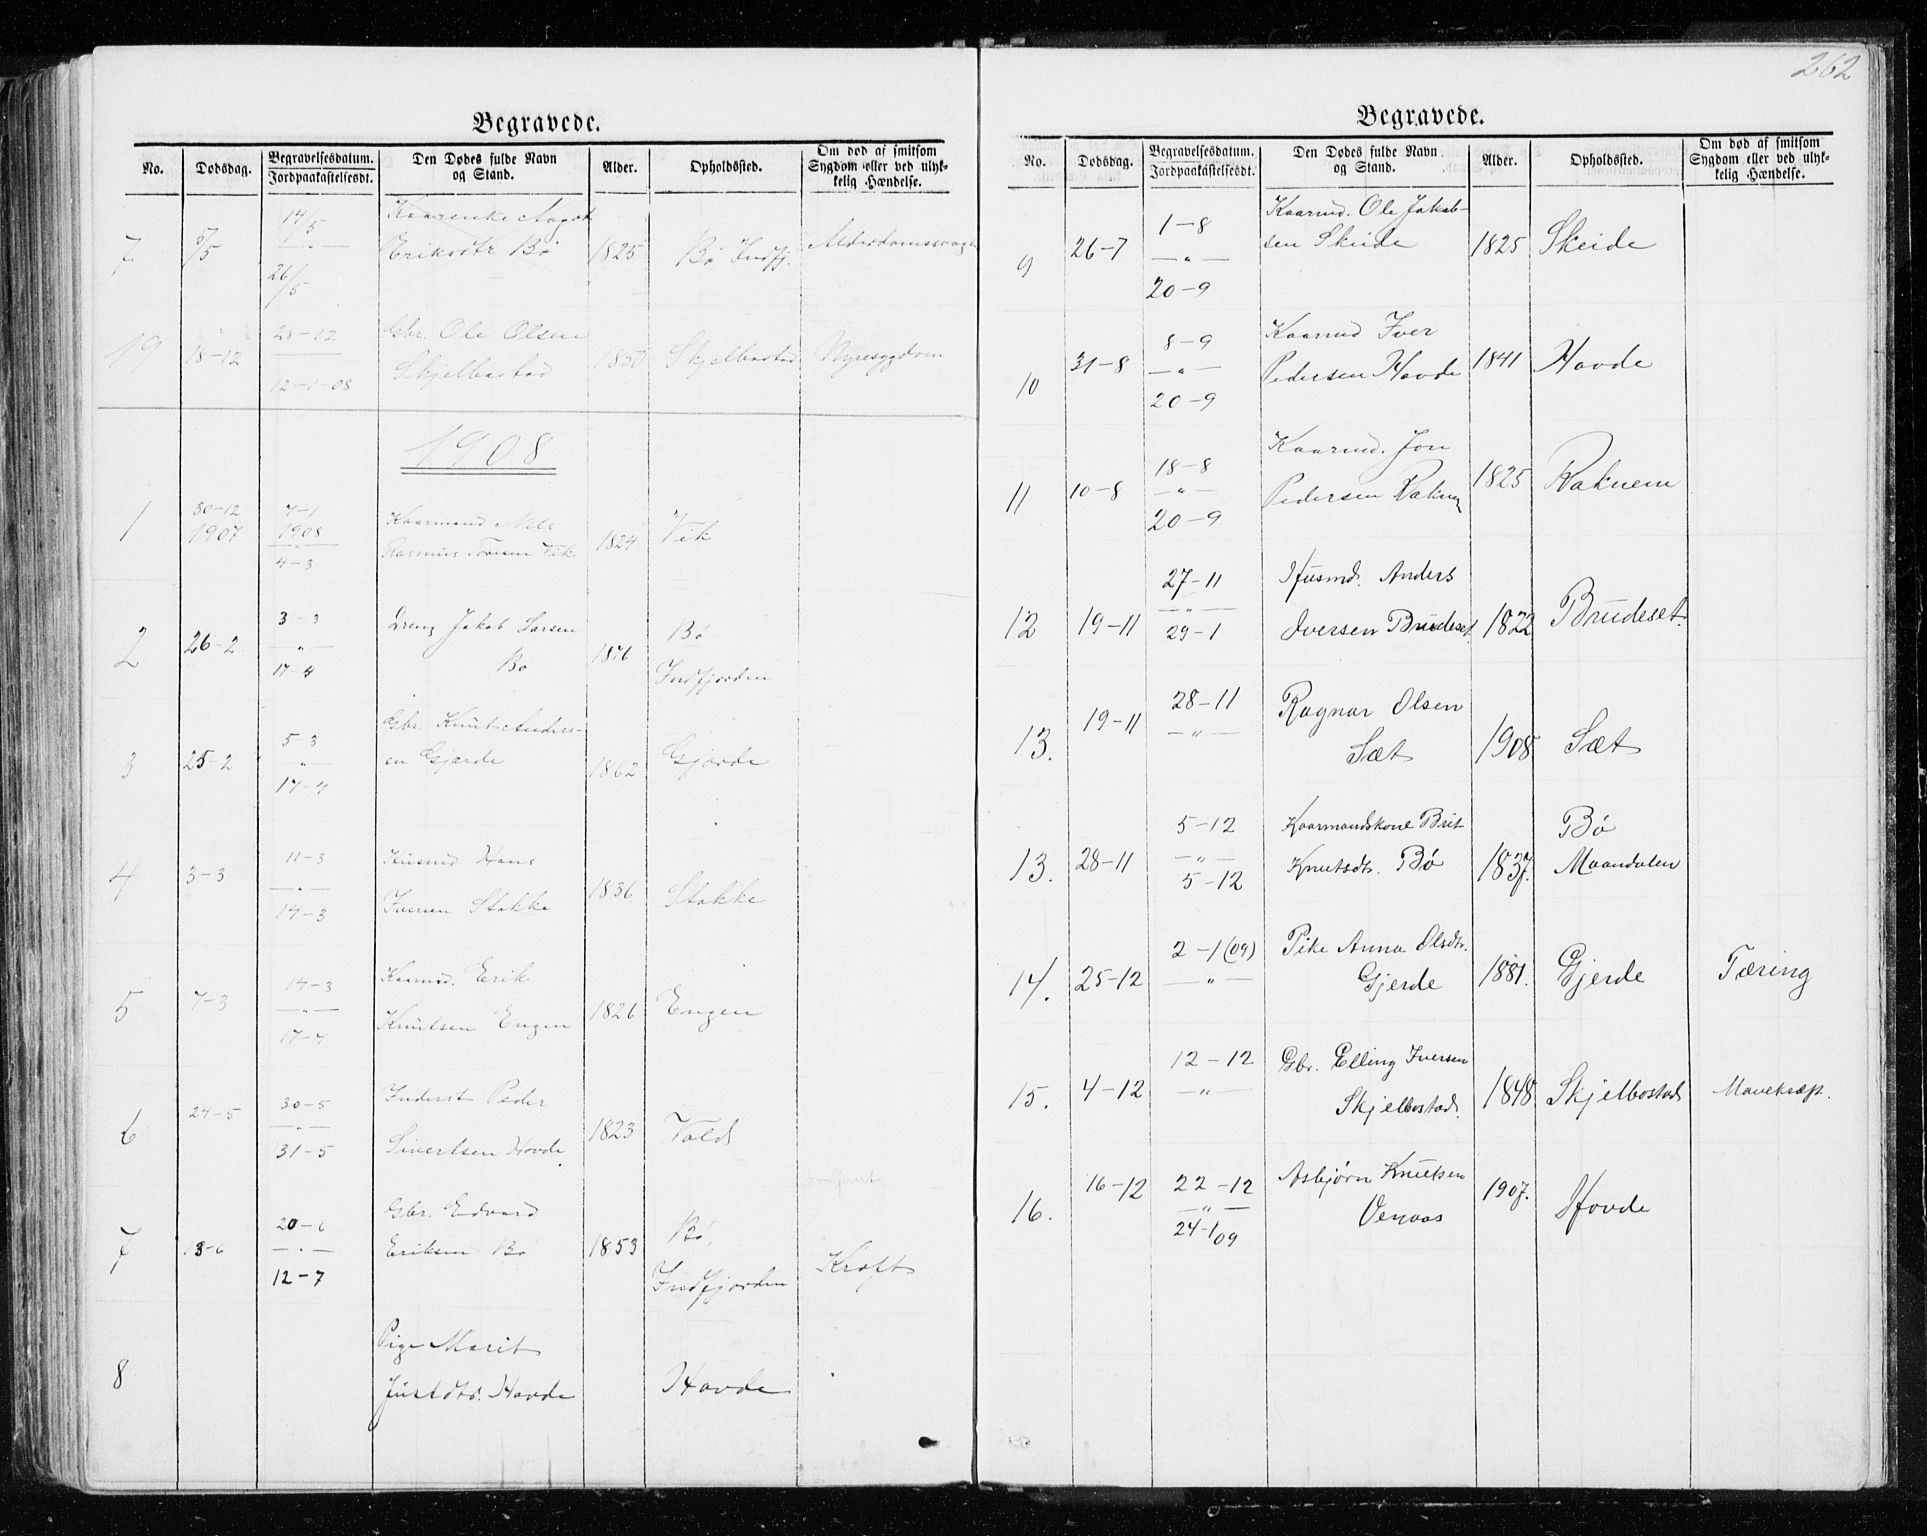 262
Begravede.
No.
Dødsdag.
Begravelsesdatum.
Jordpaakastelsesdt.
Den Dødes fulde Navn
og Stand.
Alder.
Opholdssted.
Om død af smitsom
Sygdom eller ved ulyk-
kelig Hændelse.
7
5/5
14/5
-„-
26/5
Kaarenke Aagot
Eriksdtr Bø
1825
Bø Indfj.
Alderdomssvag
19
18-12
28-12
12-1-08
Gbr. Ole Olsen
Skjelbostad
1850
Skjelbostad
Nyresygdom
1908
1
30-12
1907
7-1
1908
-„-
4-3
Kaarmand Nils
Rasmus Vik
1824
Vik
2
26-2
3-3
-„-
17-4
Dreng Jakob Larsen
Bø
1876
Bø
Indfjorden
3
25-2
5-3
-„-
17-4
Gbr. Knut Anders-
en Gjerde
1862
Gjerde
4
3-3
11-3
-„-
14-3
Husmd Hans
Iversen Stokke
1836
Stokke
5
7-3
14-3
-„-
17-4
Kaarmd. Erik
Knutsen Engen
1826
Engen
6
24-5
30-5
-„-
31-5
Inderst Peder
Sivertsen Hovde
1823
Vold
7
13-6
20-6
-„-
12-7
Gbr. Edvard
Eriksen Bø
1853
Bø,
Indfjorden
Kræft
8
Pige Marit
Hovde
Hovde
Begravede.
No.
Dødsdag.
Begravelsesdatum.
Jordpaakastelsesdt.
Den Dødes fulde Navn
og Stand.
Alder.
Opholdssted.
Om død af smitsom
Sygdom eller ved ulyk-
kelig Hændelse.
9
26-7
1-8
-„-
20-9
Kaarmd. Ole Jakob-
sen Skeide
1825
Skeide
10
31-8
8-9
-„-
20-9
Kaarmd Iver
Pedersen Hovde
1841
Hovde
11
10-8
18-8
-„-
20-9
Kaarmd. Jon
Pedersen Raknem
1825
Raknem
12
19-11
27-11
-„-
29-1
Husmd. Anders
Iversen Brudeset
1822
Brudeset.
13.
19-11
28-11
-„-
Ragnar Olsen
Sæt
1908
Sæt
13.
28-11
5-12
-„-
5-12
Kaarmandskone Brit
Knutsdt. Bø
1837.
Bø
Maandalen
14.
25-12
2-1(09)
-„-
Pike Anna Olsdtr.
Gjerde
1881.
Gjerde
Tæring
15.
4-12
12-12
-„-
Gbr. Elling Iversen
Skjelbostad.
1848
Skjelbostad
Mavekræft.
16.
16-12
22-12
-„-
24-1 09
Asbjørn Knutsen
Venaas
1907.
Hovde